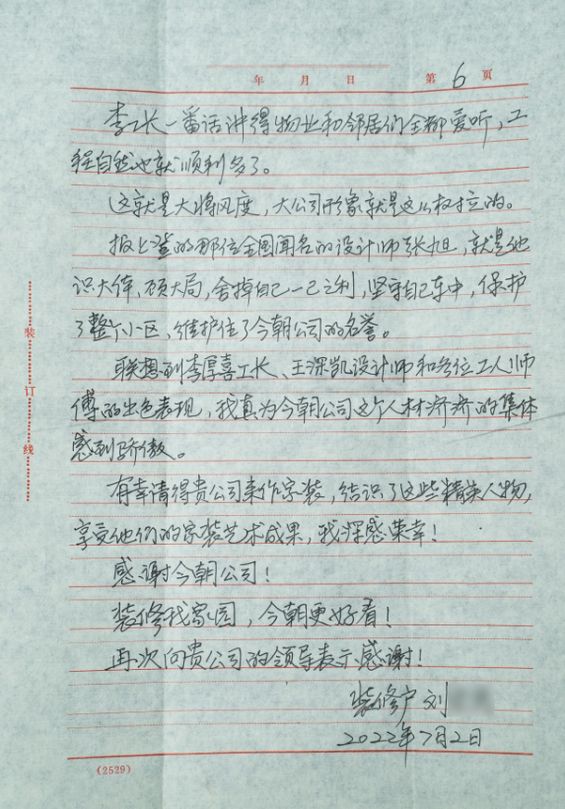 年 月 日 第 6 页
李工长一番话讲得物业和邻居们全都爱听，工
程自然也就顺利多了。
这就是大将风度，大公司形象就是这么树立的。
报上登的那位全国闻名的设计师张旭，就是他
识大体、顾大局，舍掉自己一己之利，坚守自己
保护
了整个小区，维护住了今朝公司的名誉。
联想到李厚喜工长、王深凯设计师和各位工人师
傅的出色表现，我真为今朝公司这个人材济济的集体
感到骄傲。
有幸请得贵公司来作家装，结识了这些精英人物，
享受他们的家装艺术成果，我深感荣幸！
感谢今朝公司！
装修我家园，今朝更好看！
再次向贵公司的领导表示感谢！
装修户 刘
2022年7月2日
装订线
(2529)